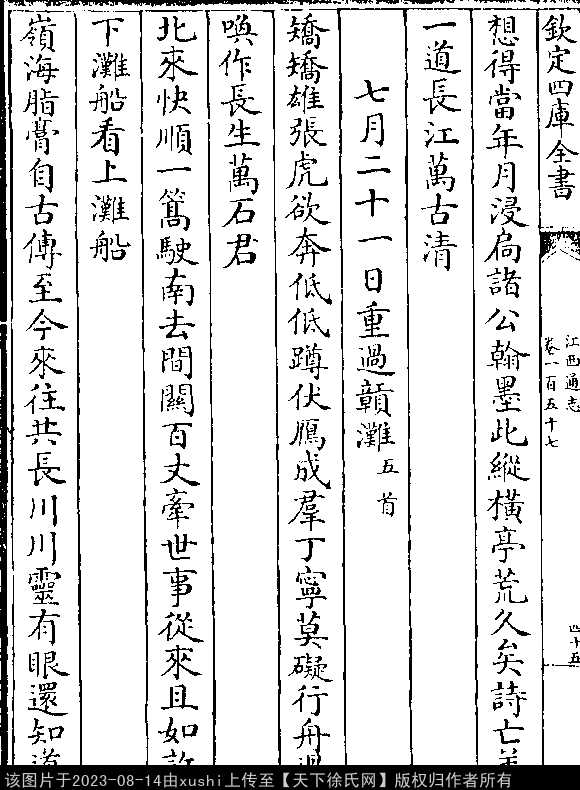 欽定四庫全書
江西通志
卷一百五十七
四十五
想得當年月浸扃諸公翰墨此縱橫亭荒久矣詩亡
一道長江萬古清
七月二十一日重過贛灘五首
矯矯雄張虎欲奔低低蹲伏鴈成羣丁寧莫礙行舟
喚作長生萬石君
北來快順一篙駛南去間關百丈牽世事從來且如許
下灘船看上灘船
嶺海脂膏自古傳至今來往共長川川靈有眼還知道
该图片于2023-08-14由xushi上传至【天下徐氏网】版权归作者所有